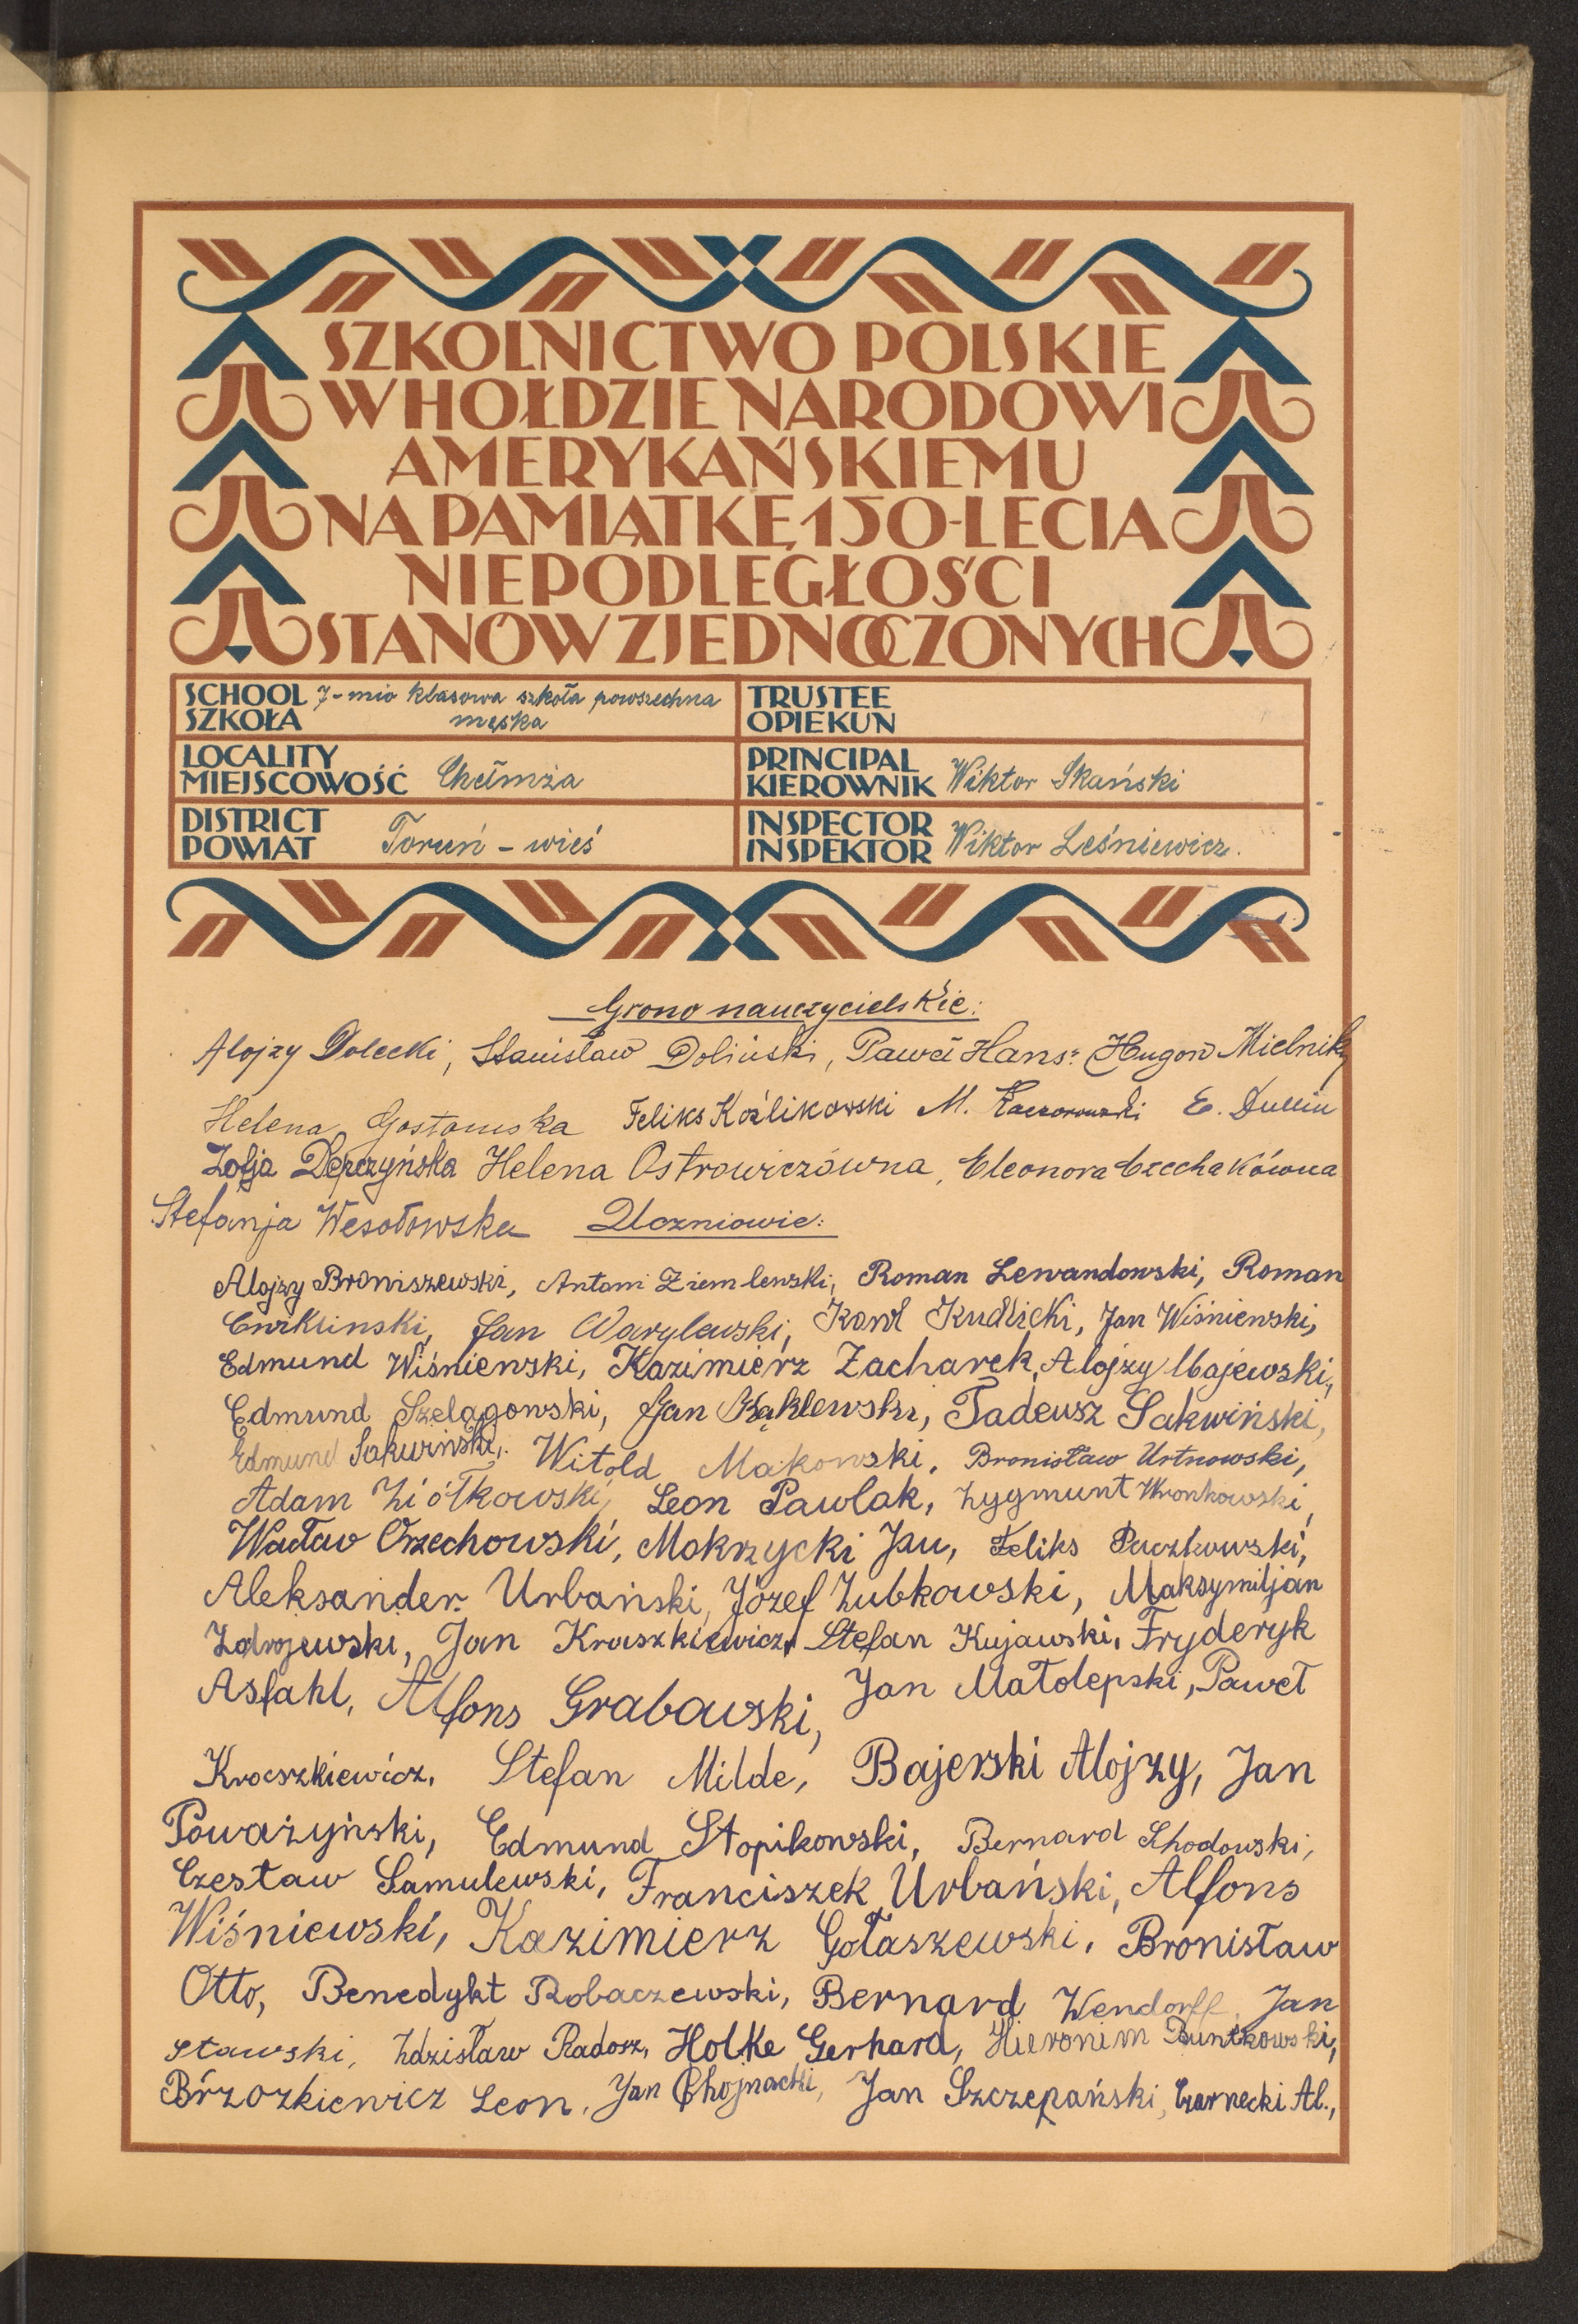 SZKOLNICTWO POLSKIE
W HOŁDZIE NARODOWI
AMERYKAŃSKIEMU
NA PAMIĄTKĘ 150-LECIA
NIEPODLEGŁOŚCI
STANÓW ZJEDNOCZONYCH
SCHOOL SZKOŁA 7-mio klasowa szkoła powszechna męska
TRUSTEE OPIEKUN
LOCALITY MIEJSCOWOŚĆ Chełmża
PRINCIPAL KIEROWNIK Wiktor Skański
DISTRICT POWIAT Toruń - wieś
INSPECTOR INSPEKTOR Wiktor Leśniewicz.
Grono nauczycielskie:
Alojzy Dolecki, Stanisław Doliński, Paweł Hans. Hugon Mielnik
Helena Gostomska Feliks Koźlikowski M. Kaczorowski E. Dullin
Zofja Depczyńska Helena Ostrowiczówna, Eleonora Czechakówna
Stefanja Wesołowska Uczniowie:
Alojzy Broniszewski, Antoni Ziemlewski, Roman Lewandowski, Roman
Jan Warylewski, Karol Kudlicki, Jan Wiśniewski,
Edmund Wiśniewski, Kazimierz Zacharek, Alojzy Majewski,
Edmund Szelągowski, Jan Kąklewski, Tadeusz Sakwiński,
Edmund Sakwiński, Witold Makowski, Bronisław Ustnowski,
Adam Ziółkowski, Leon Pawlak, Zygmunt Wronkowski,
Wacław Orzechowski, Mokrzycki Jan, Feliks Paczkowski,
Aleksander Urbański, Józef Zubkowski, Maksymiljan
Zdrojewski, Jan Kraszkiewicz, Stefan Kujawski, Fryderyk
Asfahl, Alfons Grabowski, Jan Małolepski, Paweł
Kroeszkiewicz, Stefan Milde, Bajerski Alojzy, Jan
Poważyński, Edmund Stopikowski, Bernard Shodowski,
Czesław Samulewski, Franciszek Urbański, Alfons
Wiśniewski, Kazimierz Gołaszewski, Bronisław
Otto, Benedykt Robaczewski, Bernard Wendorff, Jan
Stawski, Zdzisław Radosz, Holke Gerhard, Hieronim Buntkowski,
Brzozkiewicz Leon, Jan Chojnacki, Jan Szczepański, Czarnecki Al.,